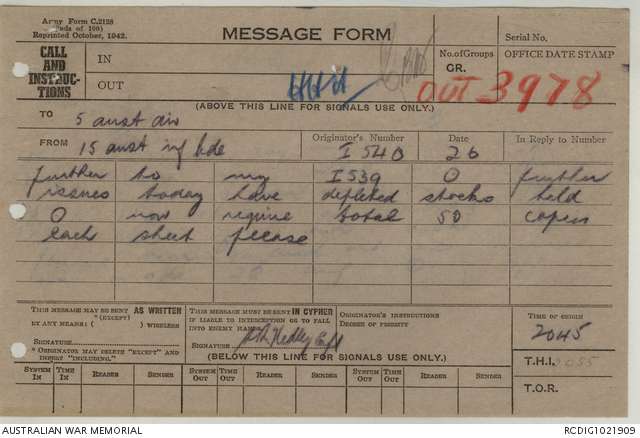 Army Form C.2128
(Pads of 100)
Reprinted October, 1942.
MESSAGE FORM
Serial No.
CALL AND INSTRUC-TIONS
IN
OUT
No. of Groups
GR.
OFFICE DATE STAMP
OUT 3978
(ABOVE THIS LINE FOR SIGNALS USE ONLY.)
TO 5 aust div
FROM 15 aust inf bde
Originator's Number I 540
Date 26
In Reply to Number
further to my I539 O further
issues today have depleted stocks held
O now require total 50 copies
each sheet please
THIS MESSAGE MAY BE SENT AS WRITTEN
*(EXCEPT)
BY ANY MEANS ( ) WIRELESS
SIGNATURE
* ORIGINATOR MAY DELETE "EXCEPT" AND INSERT "INCLUDING."
THIS MESSAGE MUST BE SENT IN CYPHER
IF LIABLE TO INTERCEPTION OR TO FALL
INTO ENEMY HANDS
SIGNATURE Hedley Capt
ORIGINATOR'S INSTRUCTIONS
DEGREE OF PRIORITY
TIME OF ORIGIN
2045
(BELOW THIS LINE FOR SIGNALS USE ONLY.)
T.H.I. 2055
SYSTEM IN TIME IN READER SENDER SYSTEM OUT TIME OUT READER SENDER SYSTEM OUT TIME OUT READER SENDER
T.O.R.
AUSTRALIAN WAR MEMORIAL
RCDIG1021909